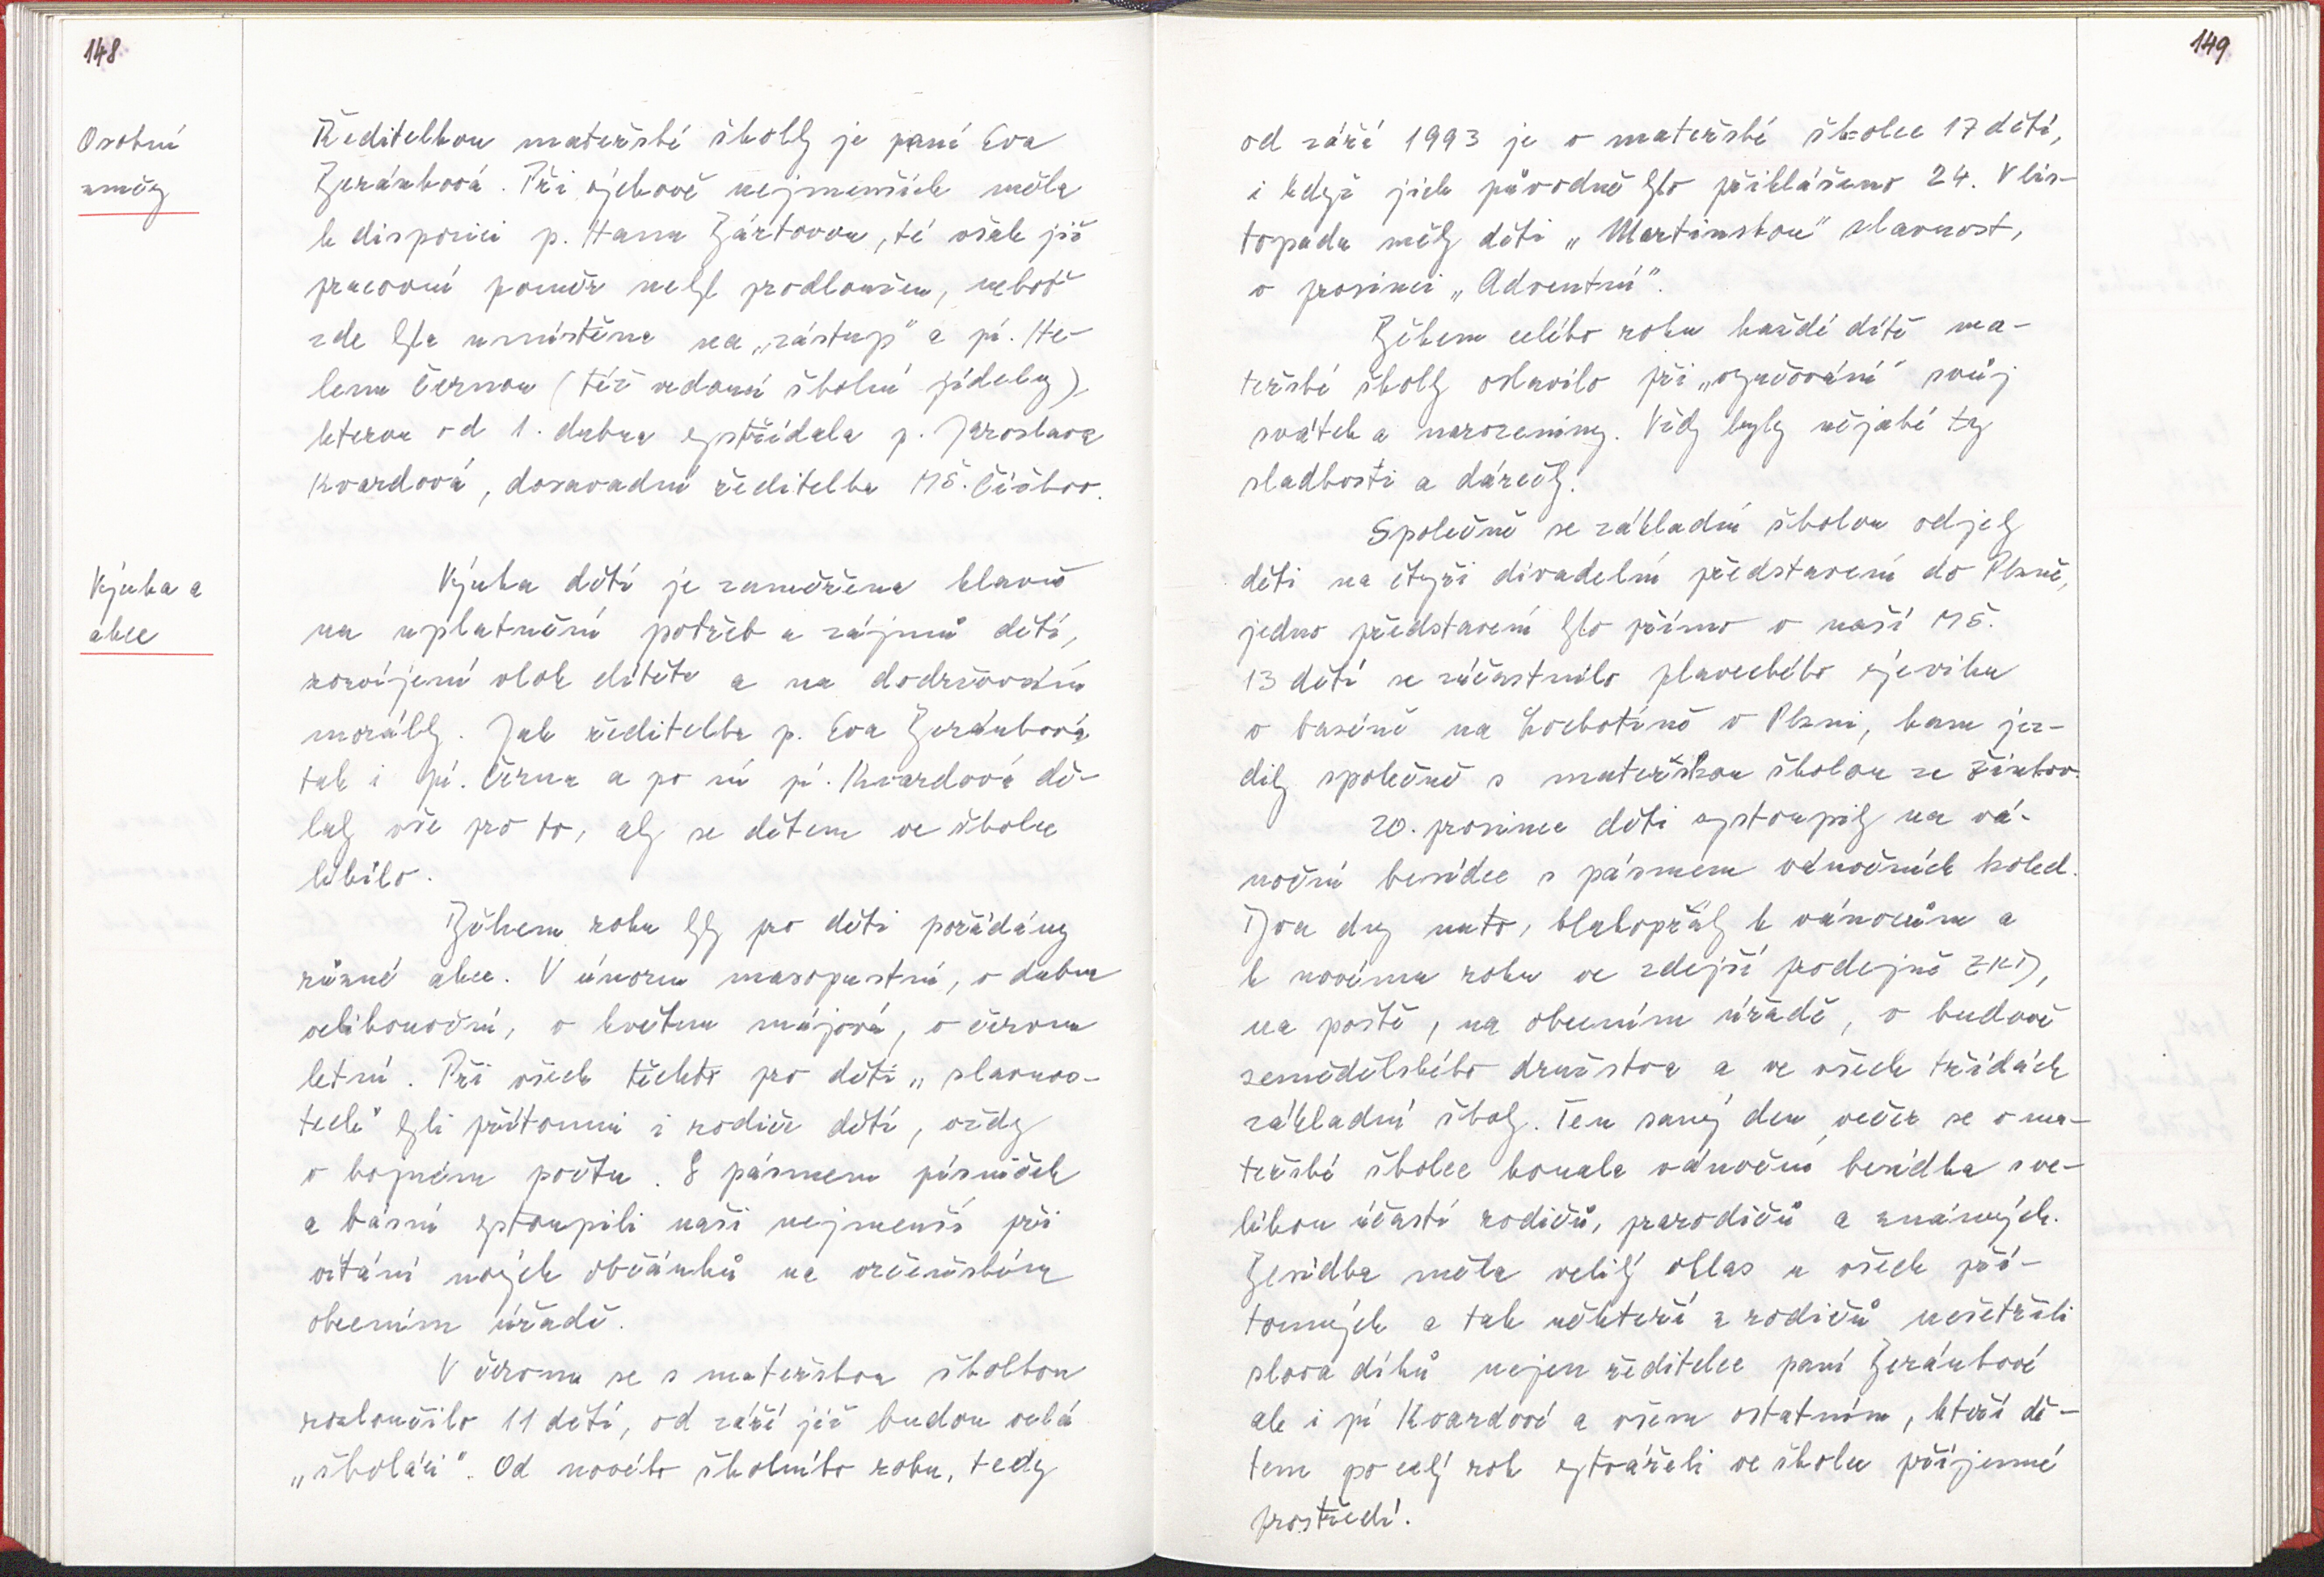 148
Osobní
změny
Ředitelkou mateřské školky je paní Eva
Beránková. Při výchově nejmenších měla
k disposici p. Hanu Bártovou, té však již
pracovní poměr nebyl prodloužen, neboť
zde byla umístěna na „zástup" a pí. He-
lenu Černou (též vedoucí školní jídelny),
kterou od 1. dubna vystřídala p. Jaroslava
Kvardová, dosavadní ředitelka MŠ. Čížkov.
Výuka a
akce
Výuka dětí je zaměřena hlavně
na uplatnění potřeb a zájmů dětí,
rozvíjení vloh dítěte a na dodržování
morálky. Jak ředitelka p. Eva Beránková
tak i pí. Černá a po ní pí. Kvardová dě-
laly vše pro to, aby se dětem ve školce
líbilo.
Během roku byly pro děti pořádány
různé akce. V únoru masopustní, v dubnu
velikonoční, v květnu májová, v červnu
letní. Při všech těchto pro děti „slavnos-
tech" byli přítomni i rodiče dětí, vždy
v hojném počtu. S pásmem písniček
a básní vystoupili naši nejmenší při
vítání nových občánků na vrčeňském
obecním úřadě.
V červnu se s mateřskou školkou
rozloučilo 11 dětí, od září již budou velcí
„školáci". Od nového školního roku, tedy
149
od září 1993 je v mateřské školce 17 dětí,
i když jich původně bylo přihlášeno 24. V lis-
topadu měly děti „Martinskou" slavnost,
v prosinci „Adventní".
Během celého roku každé dítě ma-
teřské školky oslavilo při „vyučování" svůj
svátek a narozeniny. Vždy byly nějaké ty
sladkosti a dárečky.
Společně se základní školou odjely
děti na čtyři divadelní představení do Plzně,
jedno představení bylo přímo v naší MŠ.
13 dětí se zúčastnilo plaveckého výcviku
v baséně na Lochotíně v Plzni, kam jez-
dily společně s mateřskou školou ze Žinkov.
20. prosince děti vystoupily na vá-
noční besídce s pásmem vánočních koled.
Dva dny nato, blahopřály k vánocům a
k novému roku ve zdejší prodejně ZKD,
na poště, na obecním úřadě, v budově
zemědělského družstva a ve všech třídách
základní školy. Ten samý den večer se v ma-
teřské školce konala vánoční besídka s ve-
likou účastí rodičů, prarodičů a známých.
Besídka měla veliký ohlas u všech pří-
tomných a tak někteří z rodičů nešetřili
slova díků nejen ředitelce paní Beránkové
ale i pí Kvardové a všem ostatním, kteří dě-
tem po celý rok vytvářeli ve školce příjemné
prostředí.